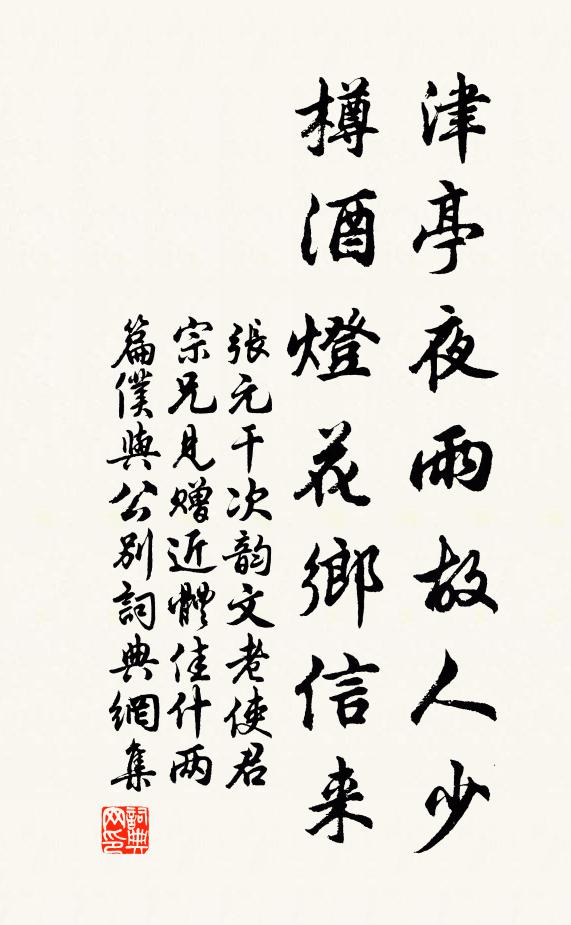 津亭夜雨故人少
樽酒燈花鄉信来
張元干次韵文老使君
宗兄見贈近體佳什两
篇僕與公别詞典網集
詞典
网印